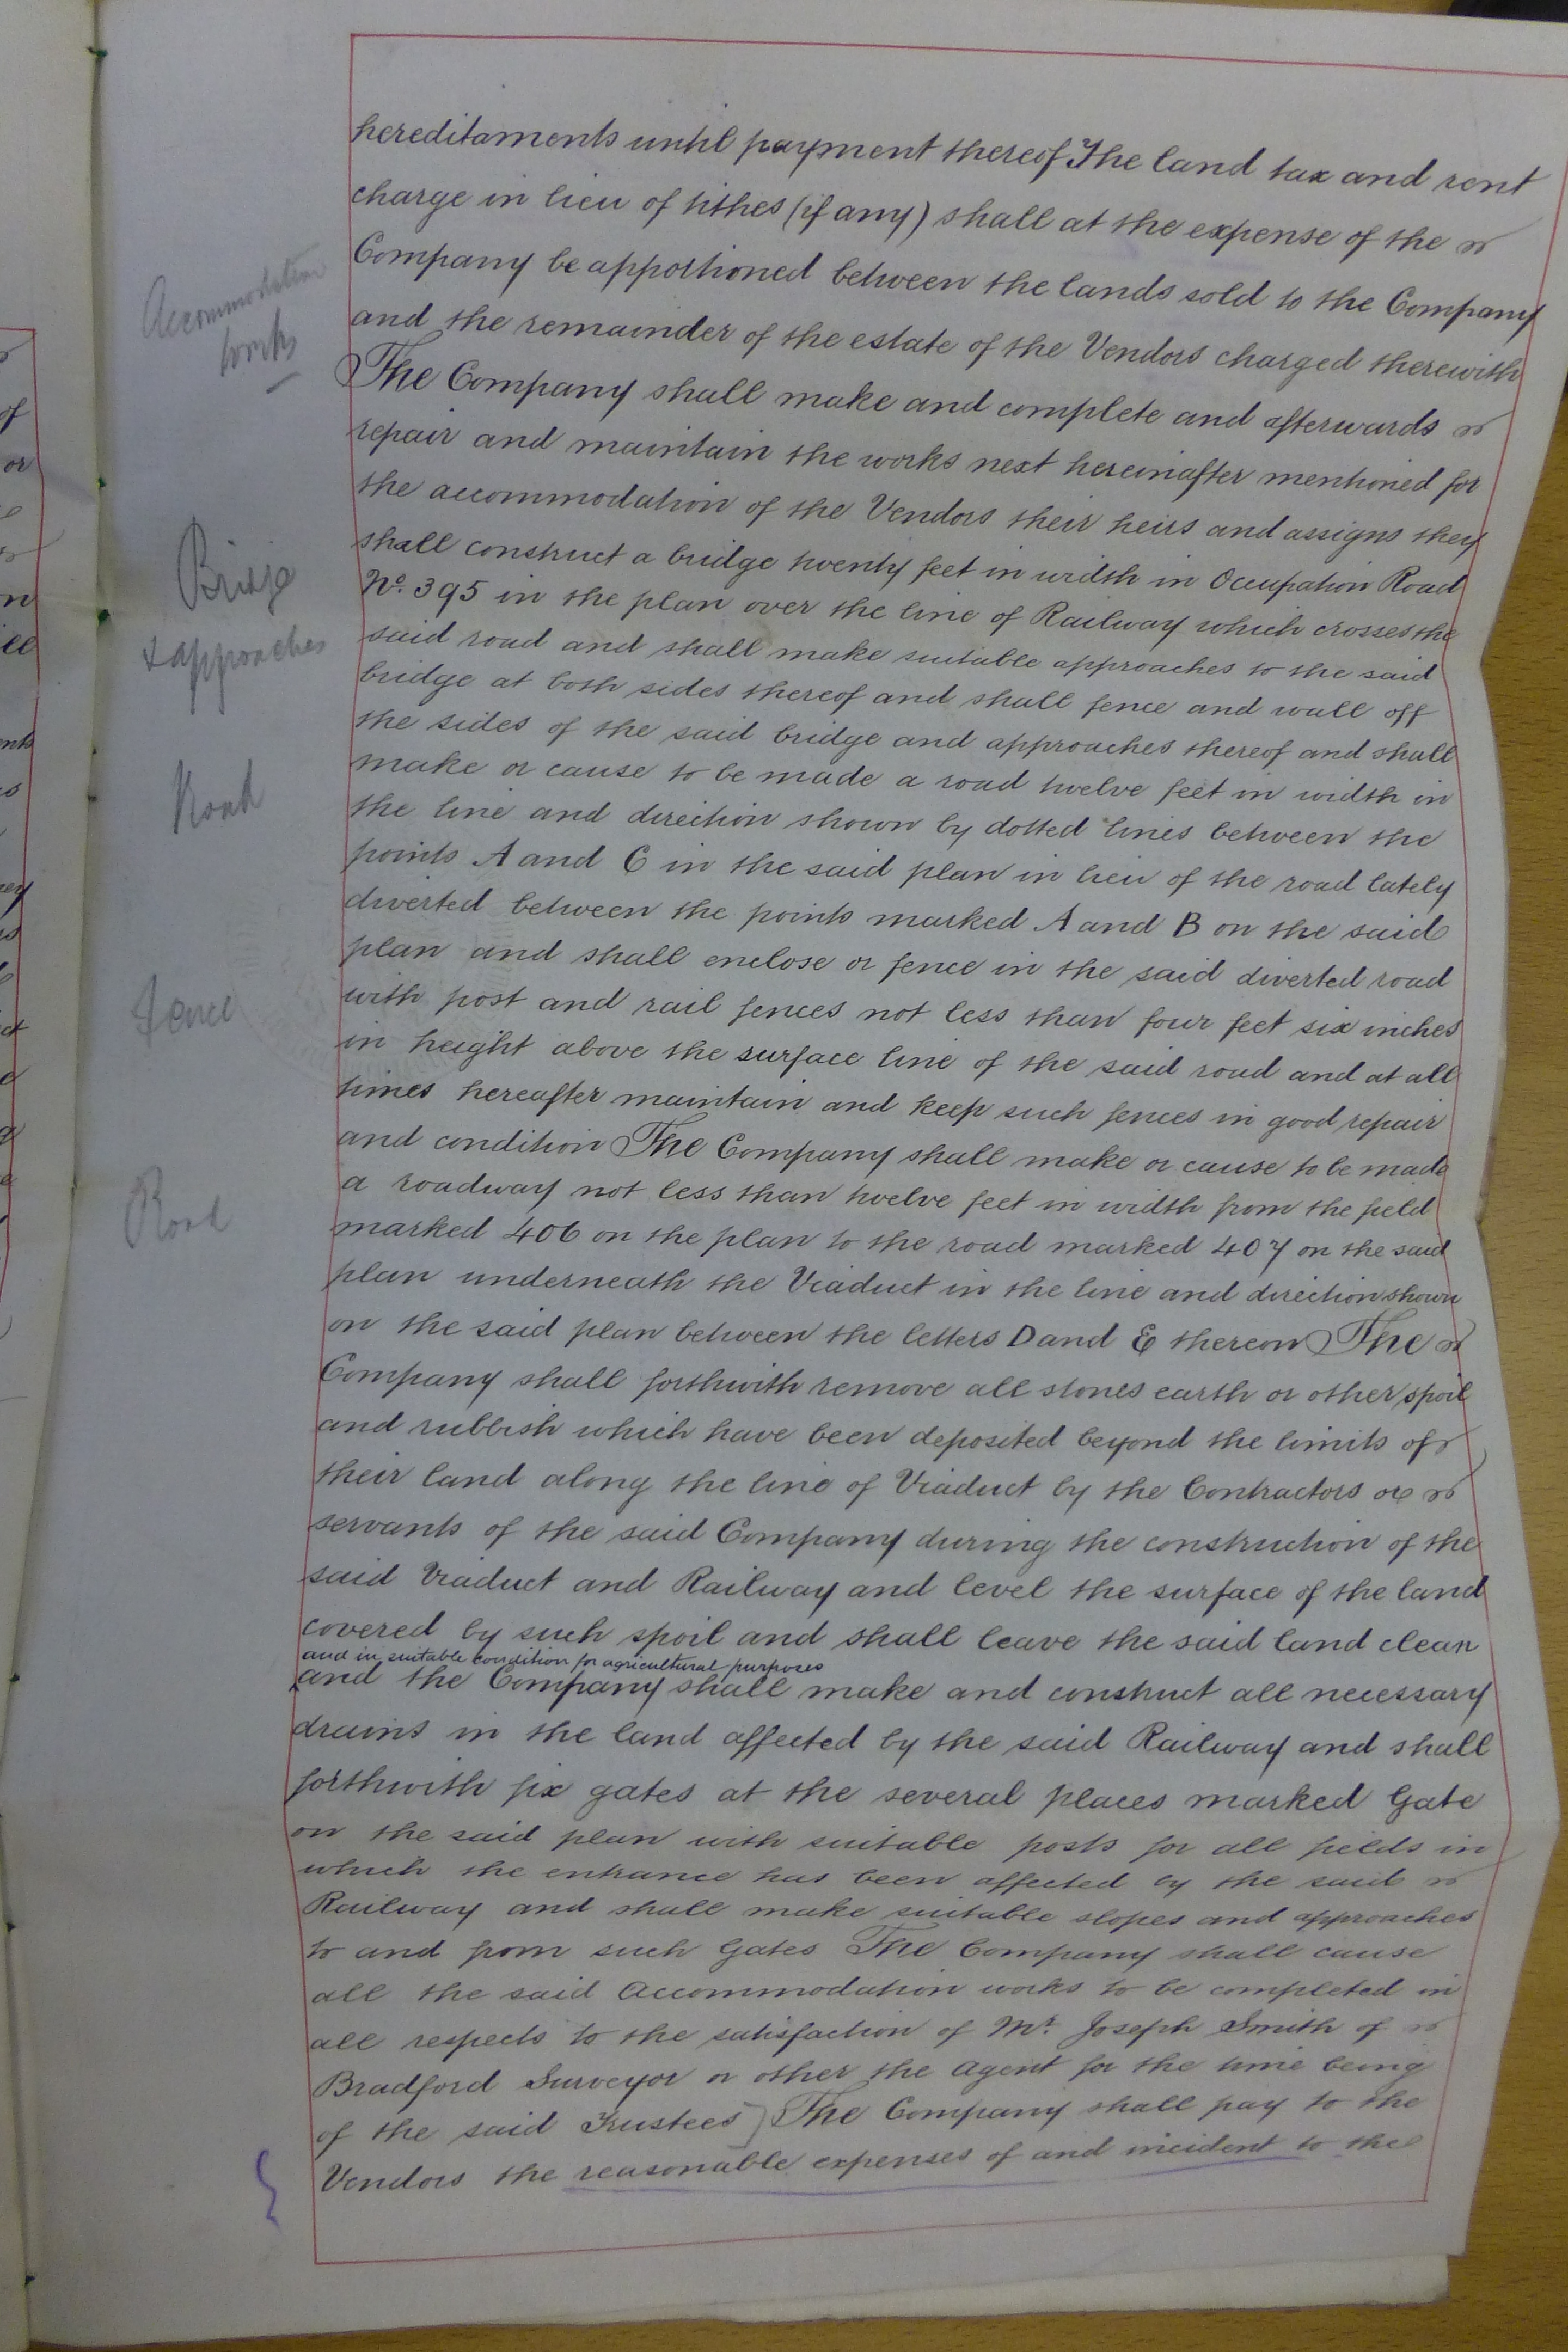 hereditaments until payment thereof The land tax and rent
charge in lieu of tithes (if any) shall at the expense of the
Accommodation
works
Company be apportioned between the lands sold to the Company
and the remainder of the estate of the Vendors charged therewith
The Company shall make and complete and afterwards
repair and maintain the works next hereinafter mentioned for
the accommodation of the Vendors their heirs and assigns they
Bridge
& approaches
shall construct a bridge twenty feet in width in Occupation Road
No. 395 in the plan over the line of Railway which crosses the
said road and shall make suitable approaches to the said
bridge at both sides thereof and shall fence and wall off
the sides of the said bridge and approaches thereof and shall
Road
make or cause to be made a road twelve feet in width in
the line and direction shown by dotted lines between the
points A and C in the said plan in lieu of the road lately
diverted between the points marked A and B on the said
Fence
plan and shall enclose or fence in the said diverted road
with post and rail fences not less than four feet six inches
in height above the surface line of the said road and at all
times hereafter maintain and keep such fences in good repair
and condition The Company shall make or cause to be made
Road
a roadway not less than twelve feet in width from the field
marked 406 on the plan to the road marked 407 on the said
plan underneath the Viaduct in the line and direction shown
on the said plan between the letters D and E thereon The
Company shall forthwith remove all stones earth or other spoil
and rubbish which have been deposited beyond the limits of
their land along the line of Viaduct by the Contractors or
servants of the said Company during the construction of the
said Viaduct and Railway and level the surface of the land
covered by such spoil and shall leave the said land clean
and in suitable condition for agricultural purposes
and the Company shall make and construct all necessary
drains in the land affected by the said Railway and shall
forthwith fix gates at the several places marked Gate
on the said plan with suitable posts for all fields in
which the entrance has been affected by the said
Railway and shall make suitable slopes and approaches
to and from such Gates The Company shall cause
all the said Accommodation works to be completed in
all respects to the satisfaction of Mr. Joseph Smith of
Bradford Surveyor or other the Agent for the time being
of the said Trustees The Company shall pay to the
Vendors the reasonable expenses of and incident to the